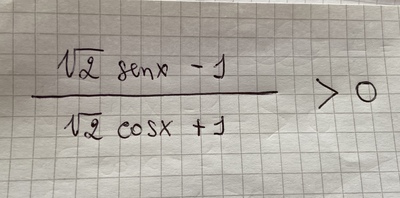 √2 senx - 1
√2 cosx + 1
> 0